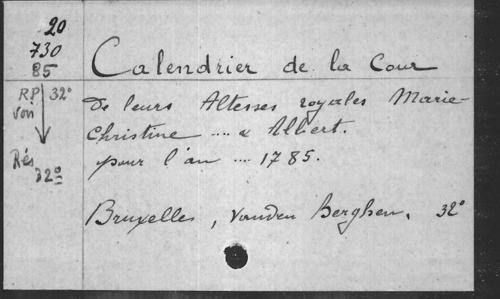 20
730
85
Calendrier de la Cour
RP 32°
voir
Rés
32°
de leurs Altesses royales Marie-
Christine .... & Albert.
pour l'an .... 1785.
Bruxelles, Vanden Berghen. 32°